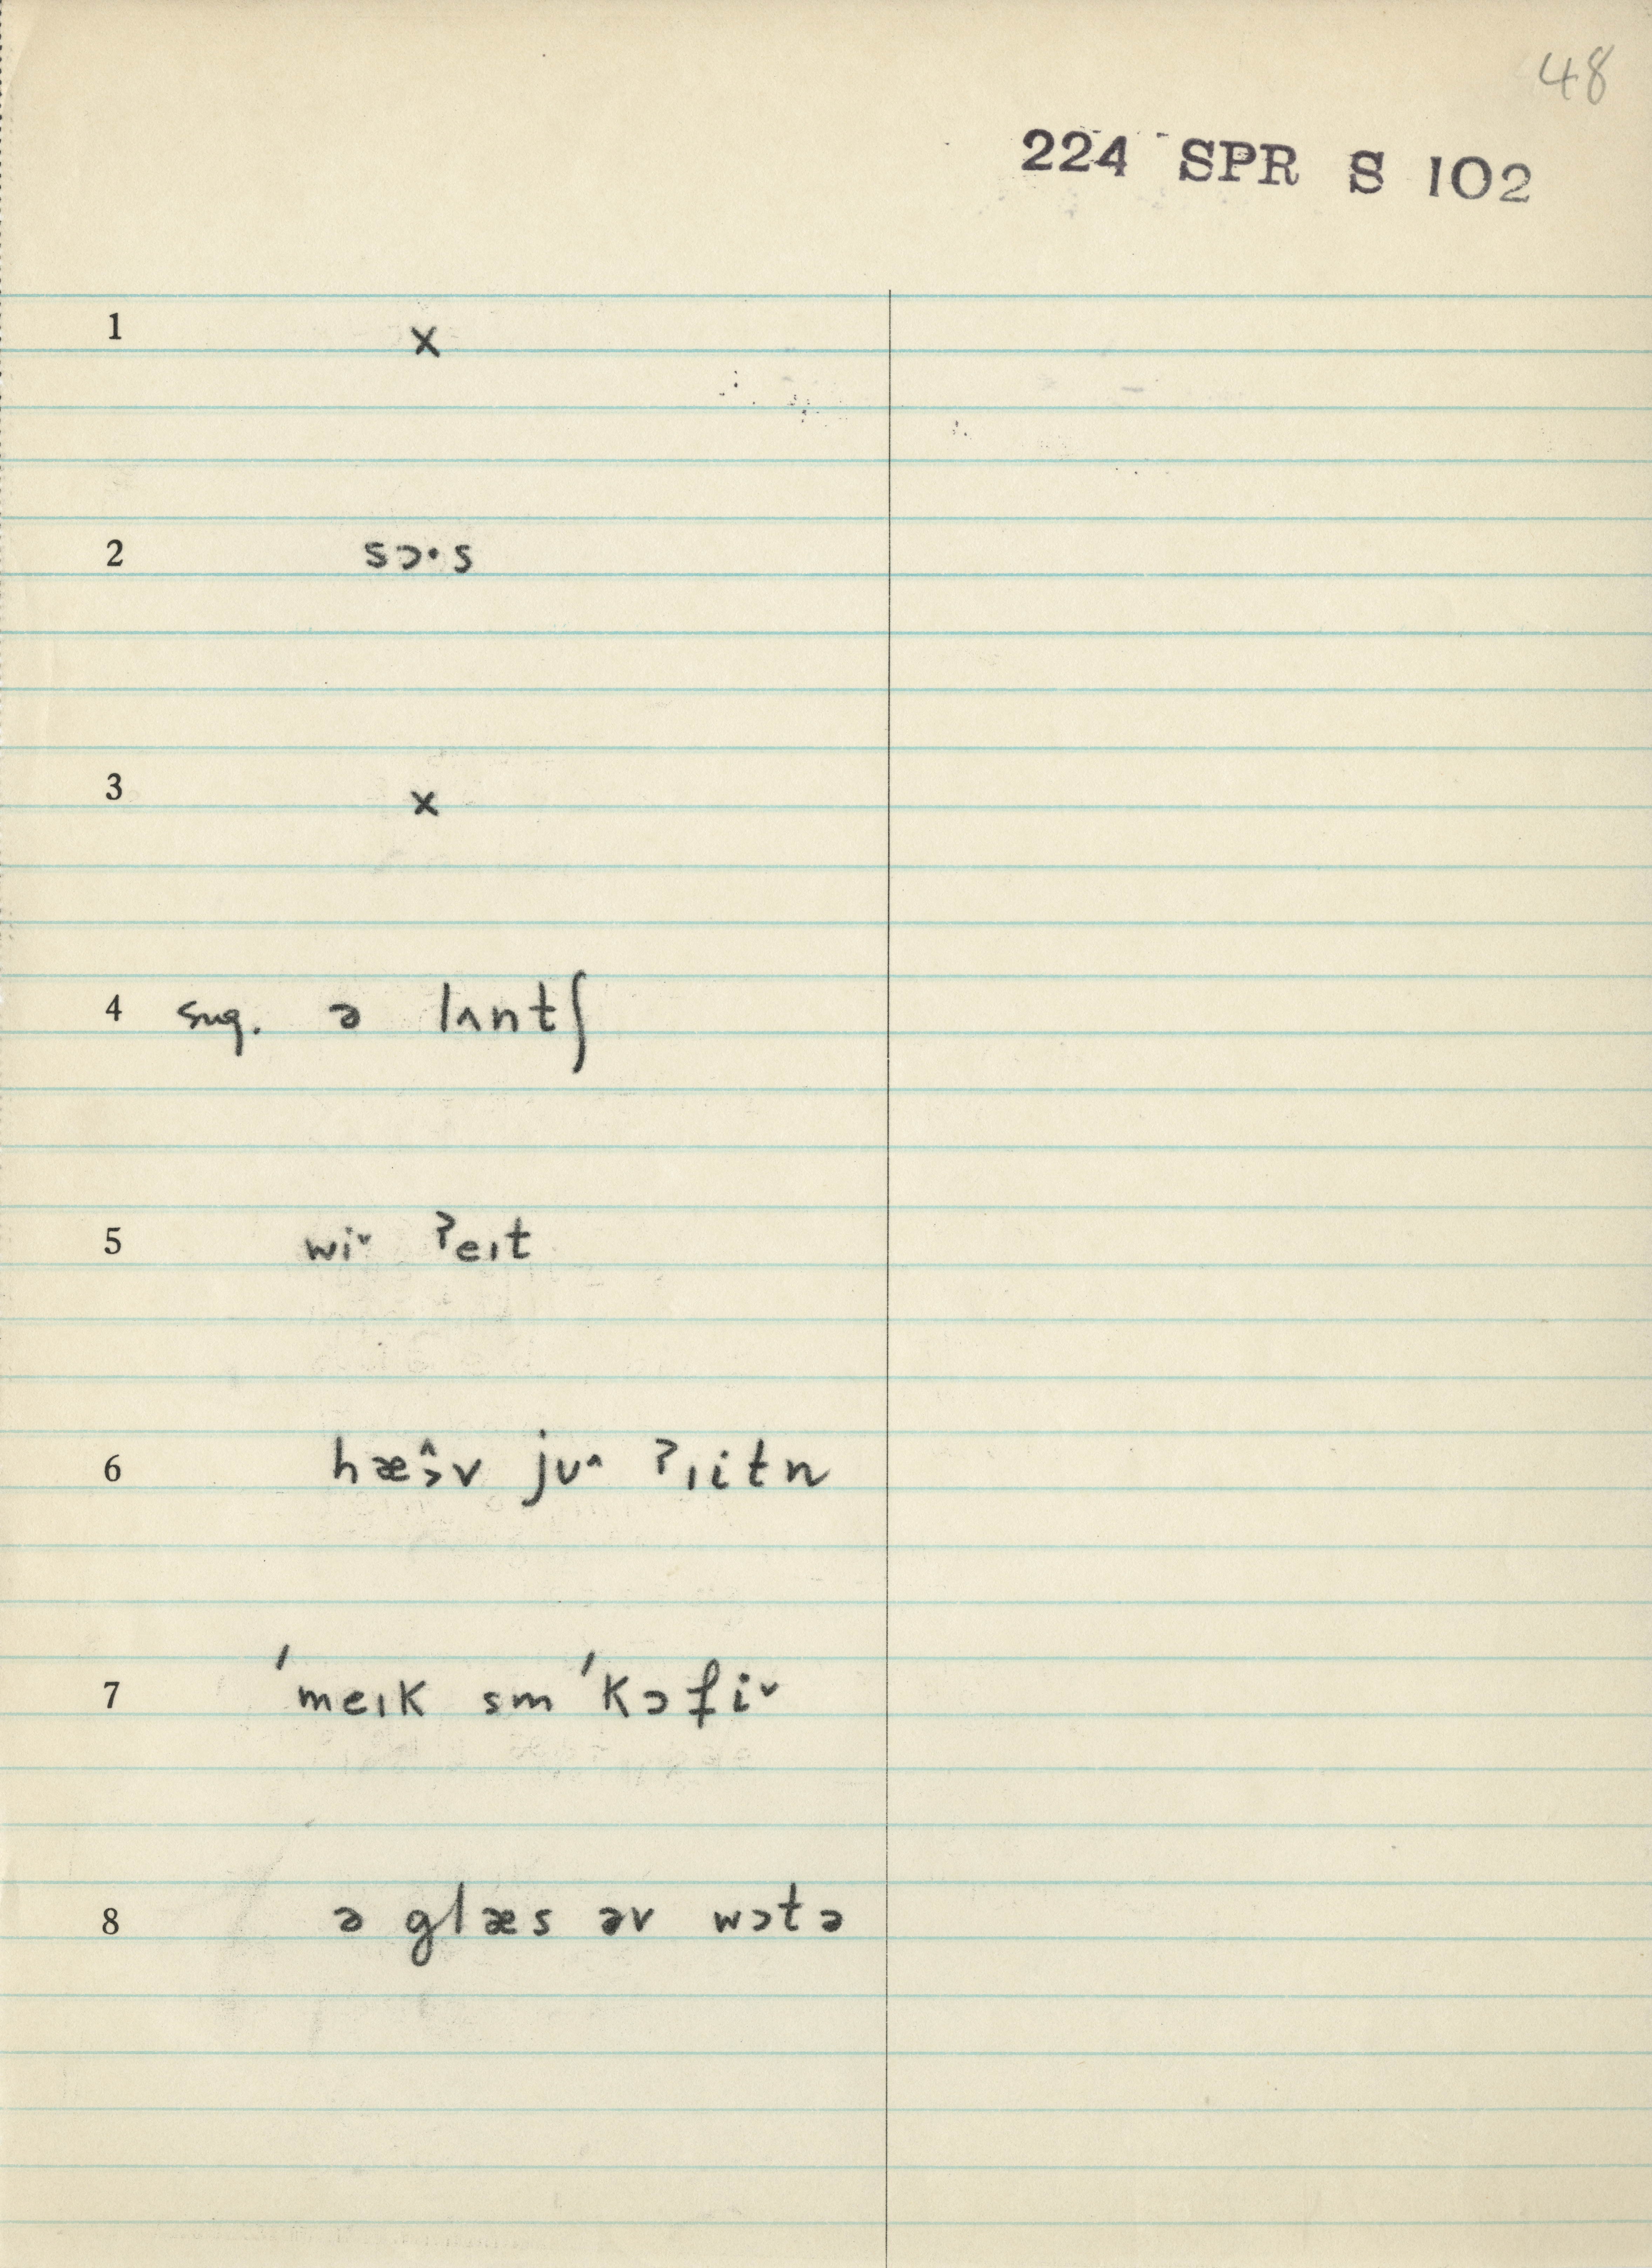 48
224 SPR S 102
1 x
2 sɔ·s
3 x
4 sug. ə lʌntʃ
5 wi˅ ˀeɪt
6 hæ̂˃v jʊ˄ ˀɪitn
7 ˈmeɪk sm ˈkɔfi˅
8 ə glæs əv wɔtə